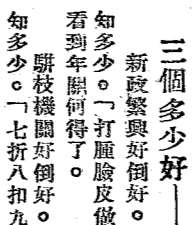 三個多少好——
新政繁興好倒好。
知多少。「打腫臉皮做
看到年關何得了。
駢枝機關好倒好。
知多少。「七折八扣九